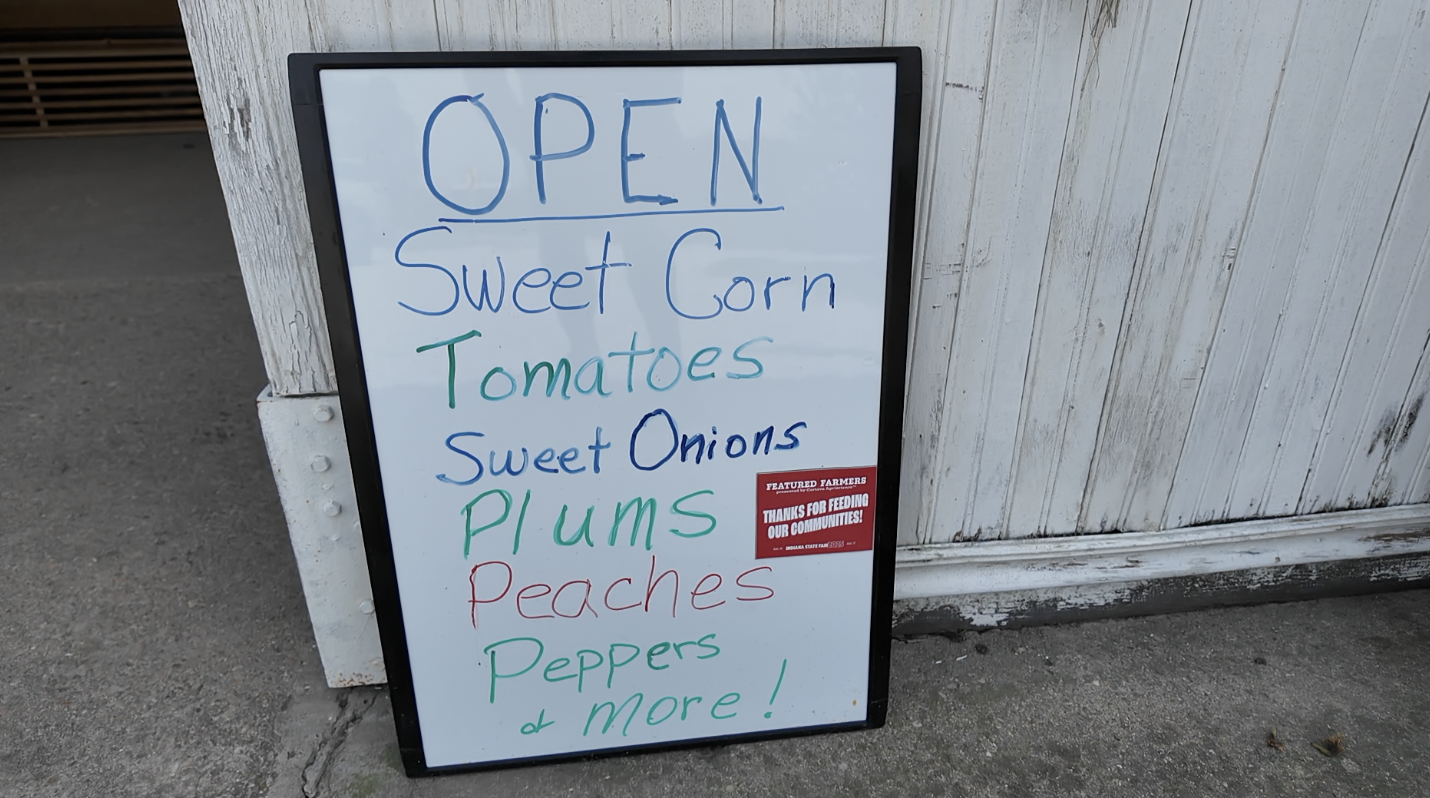 OPEN
Sweet Corn
Tomatoes
Sweet Onions
Plums
FEATURED FARMERS
presented by Corteva Agriscience
THANKS FOR FEEDING
OUR COMMUNITIES!
INDIANA STATE FAIR 2025
Peaches
Peppers
& more!